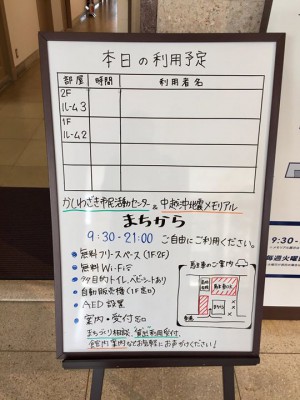 本日の利用予定
部屋 時間 利用者名
2F
ルーム3
1F
ルーム2
かしわざき市民活動センター & 中越沖地震メモリアル
まちから
9:30-21:00 ご自由にご利用ください。
無料フリースペース(1F2F)
無料Wi-Fi
多目的トイレ、ベビーシートあり
自動販売機(1F窓口)
AED設置
案内・受付窓口
まちづくり相談、貸出利用受付、
館内案内などお気軽にお声がけください!
駐車場のご案内
まちから
9:30-
毎週火曜